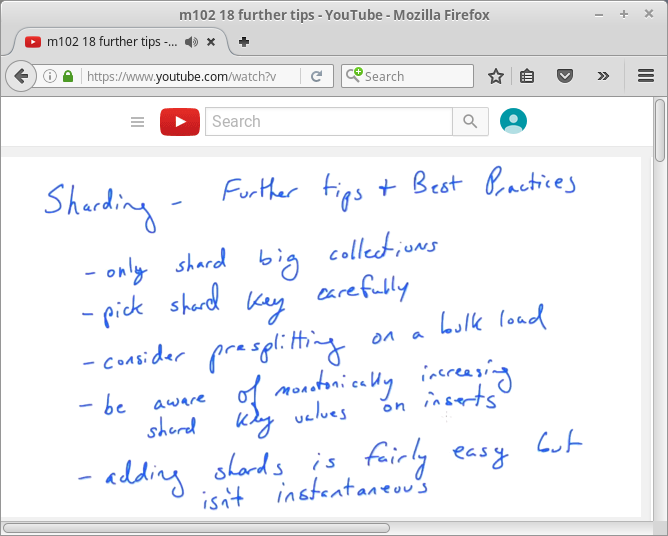 m102 18 further tips - YouTube - Mozilla Firefox
m102 18 further tips -...
https://www.youtube.com/watch?v
Search
Search
Sharding - Further tips + Best Practices
- only shard big collections
- pick shard key carefully
- consider presplitting on a bulk load
- be aware of monotonically increasing
shard key values on inserts
- adding shards is fairly easy but
isn't instantaneous